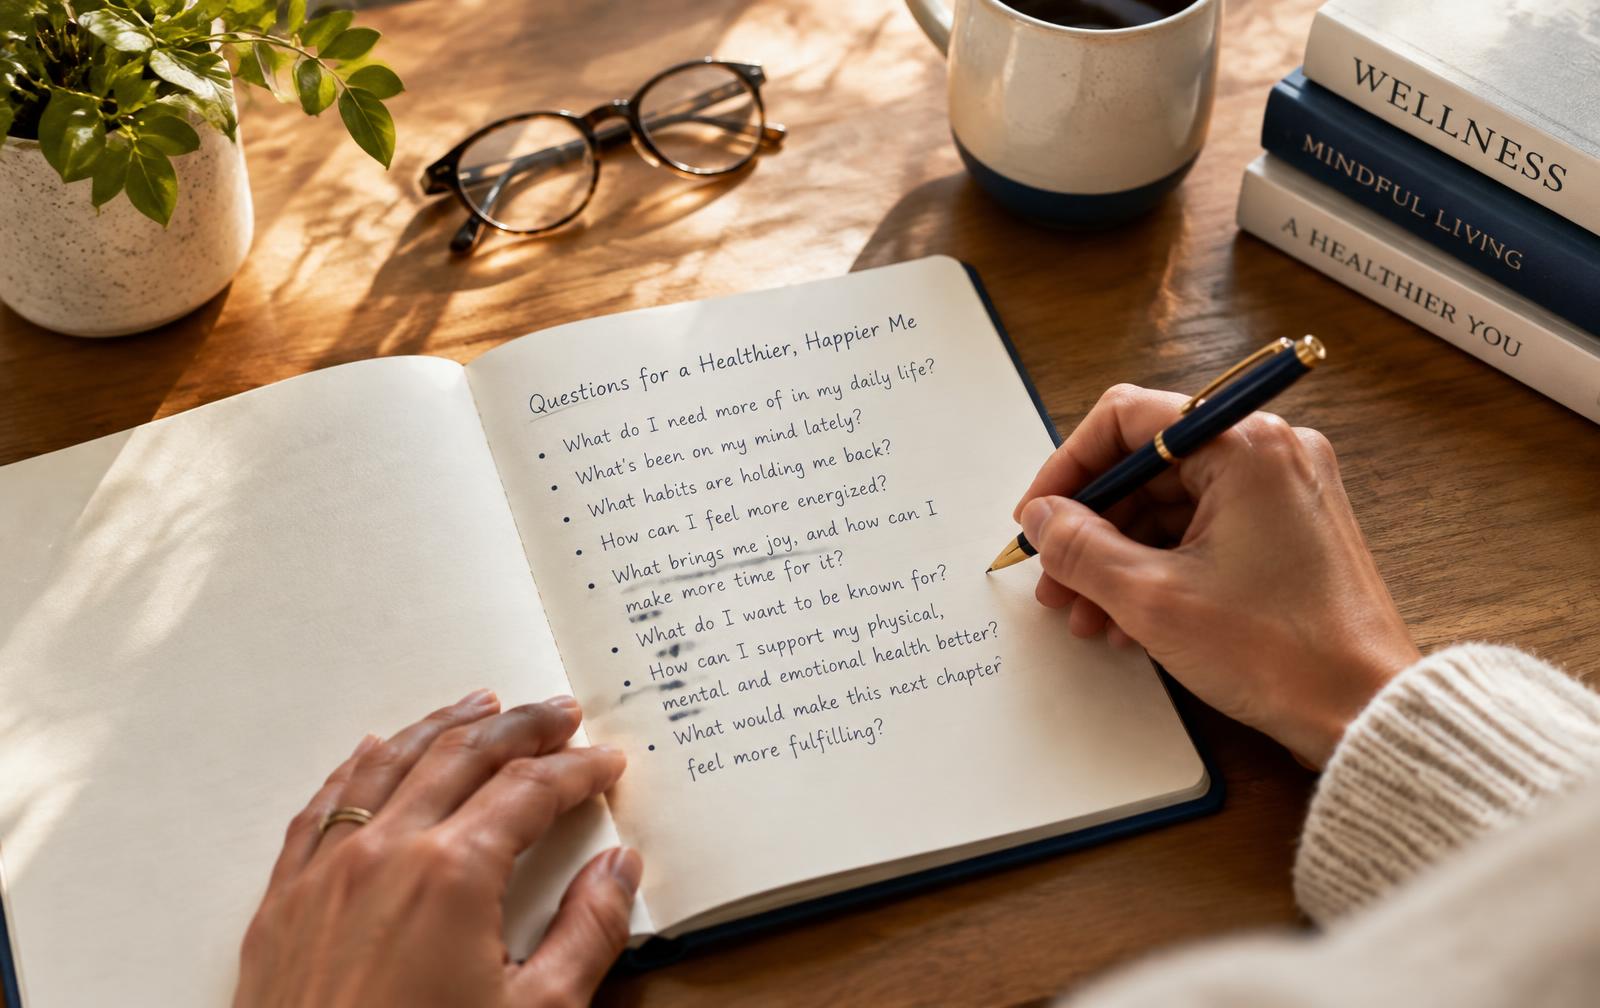 WELLNESS
MINDFUL LIVING
A HEALTHIER YOU
Questions for a Healthier, Happier Me
• What do I need more of in my daily life?
• What's been on my mind lately?
• What habits are holding me back?
• How can I feel more energized?
• What brings me joy, and how can I
make more time for it?
• What do I want to be known for?
• How can I support my physical,
mental and emotional health better?
• What would make this next chapter
feel more fulfilling?